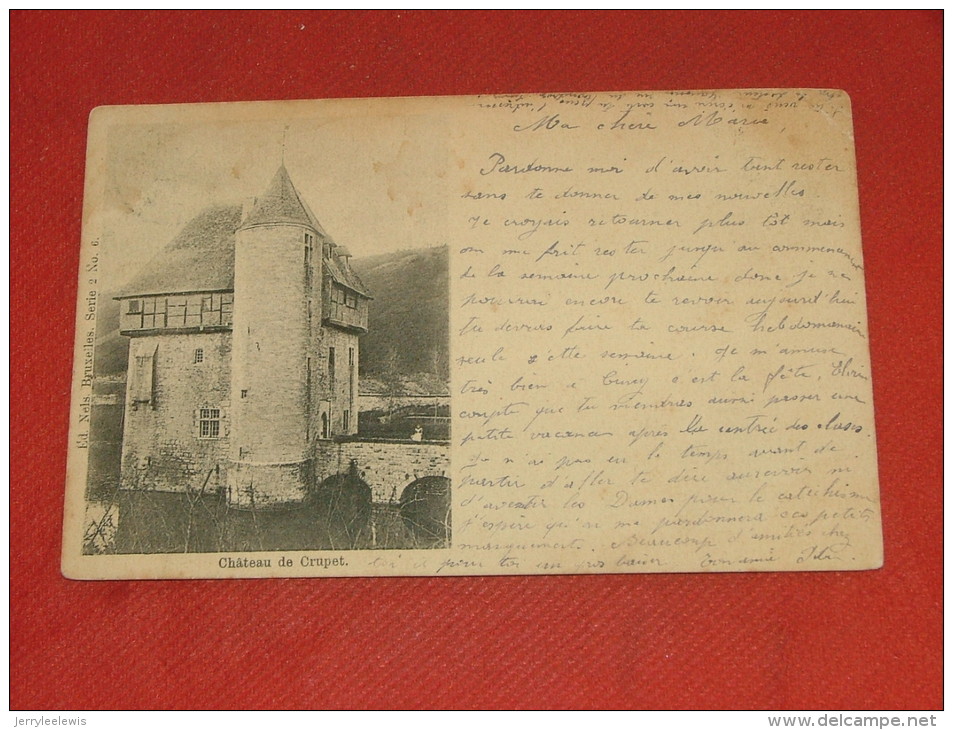 Ma chère Marie,
Pardonne moi d'avoir tant rester
sans te donner de mes nouvelles.
Je croyais retourner plus tôt mais
on me fait rester jusqu'au commencem
de la semaine prochaine donc je ne
pourrai encore te revoir aujourd'hui
tu devras faire ta course hebdomadaire
seule cette semaine. Je m'amuse
très bien à Ciney c'est la fête,
compte que tu viendras aussi passer une
petite vacance après la rentrée des classes.
Je n'ai pas eu le temps avant de
partir d'aller te dire au revoir ni
d'avertir les Dames pour le catéchisme
j'espère qu'on me pardonnera ces petits
manquement. Beaucoup d'amitiés chez
toi et pour toi un gros baiser Ton amie
Ed. Nels, Bruxelles. Serie 2 No. 6.
Château de Crupet.
jerryleelewis
www.delcampe.net